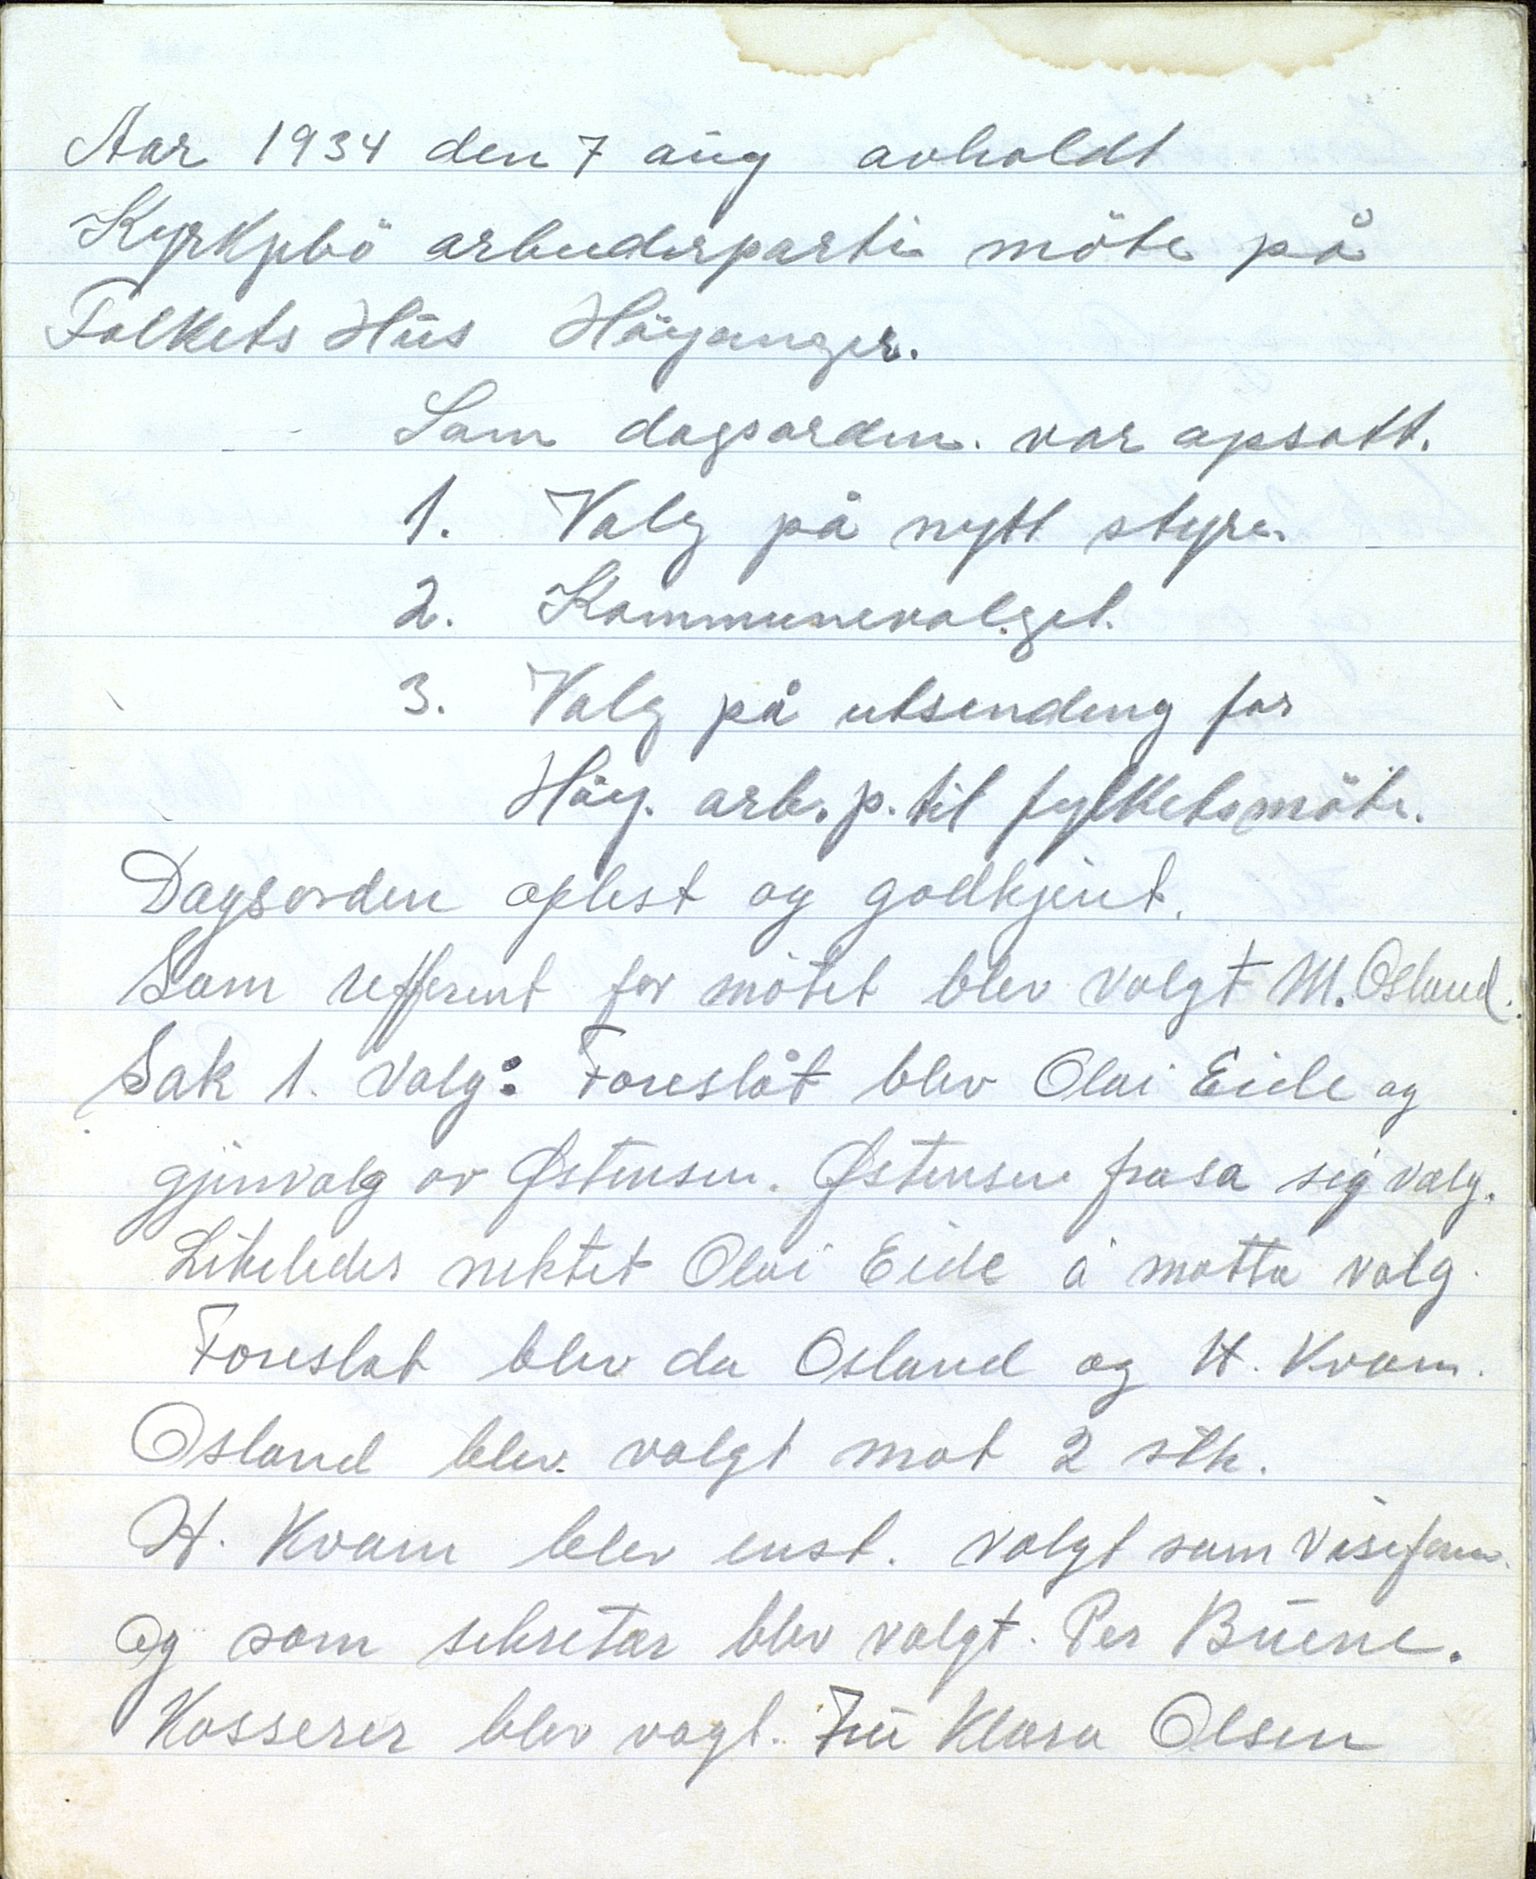 Aar 1934 den 7 aug avholdt
Kyrkjebö arbeiderparti möte på
Folkets Hus Höyanger.
Som dagsorden. var opsatt.
1. Valg på nytt styre.
2. Kommunevalget.
3. Valg på utsending for
Höy. arb. p. til fylketsmöte.
Dagsorden oplest og godkjent.
Som refferent for mötet blev valgt M. Osland.
Sak 1. Valg: Foreslåt blev Olai Eide og
gjenvalg av Østensen. Østensen frasa sig valg.
Likeledes nektet Olai Eide å motta valg.
Foreslat blev da Osland og H. Kvam.
Osland blev valgt mot 2 stk.
H. Kvam blev enst. valgt som visefom.
og som sekretær blev valgt. Per Buene.
Kasserer blev vagt. Fru Klara Olsen